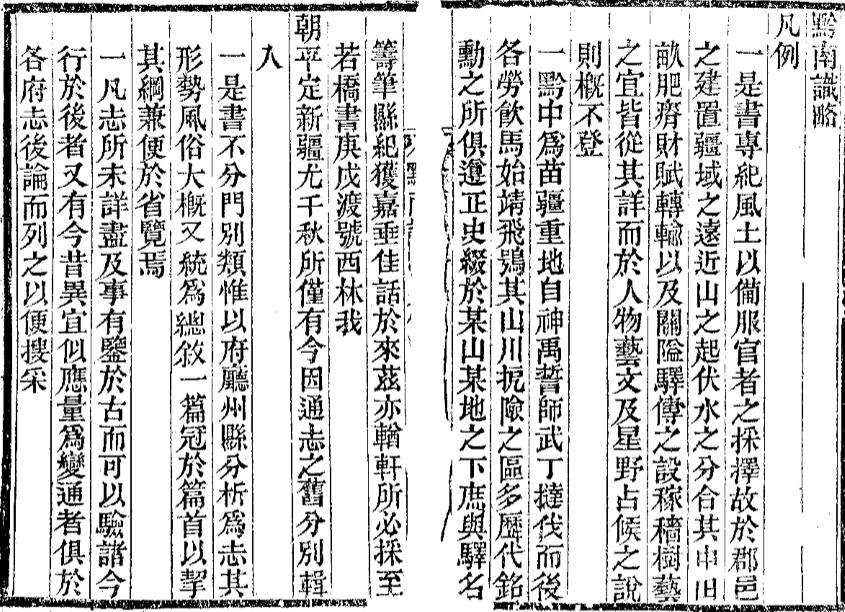 黔南識略
凡例
一是書專紀風土以備服官者之採擇故於郡邑
之建置疆域之遠近山之起伏水之分合其中田
畝肥瘠財賦轉輸以及關隘驛傳之設稼穡樹藝
之宜皆從其詳而於人物藝文及星野占候之說
則槪不登
一黔中爲苗疆重地自神禹誓師武丁撻伐而後
各勞飲馬始靖飛鴞其山川扼險之區多歷代銘
勳之所俱遵正史綴於某山某地之下庶與驛名
籌筆縣紀獲嘉垂佳話於來茲亦輶軒所必採至
若橋書庚戌渡號西林我
朝平定新疆尤千秋所僅有今因通志之舊分別輯
入
一是書不分門別類惟以府廳州縣分析爲志其
形勢風俗大槪又統爲總敘一篇冠於篇首以挈
其綱兼便於省覽焉
一凡志所未詳盡及事有鑒於古而可以驗諸今
行於後者又有今昔異宜似應量爲變通者俱於
各府志後論而列之以便搜采